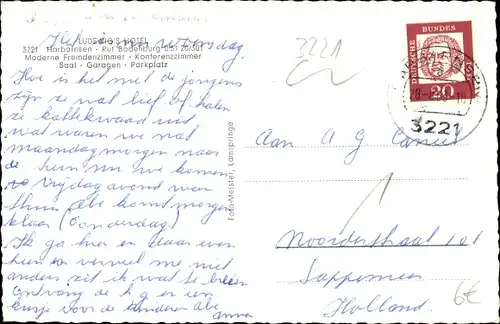 LUDEWIG'S HOTEL
3221 Harbarnsen - Ruf Bodenburg 051 20/301
Moderne Fremdenzimmer - Konferenzzimmer
Saal - Garagen - Parkplatz
Hoe is het met de jongens
zijn ze wat lief of halen
ze kattekwaad uit
wat waren we nat
maandagmorgen naar
de trein nu we komen
vrijdag avond weer
thuis Abe komt morgen
klaar (Donderdag)
Ik ga hier en daar even
heen en verveel me niet
anders zit ik wat te breien
ontvang de h g er en
kusje voor de kinderen Abe
Anna
Foto-Meister, Lamspringe
3221
DEUTSCHE BUNDESPOST
20
3221
Aan A G
Noorderstraat 101
Sappemeer
Holland
6€